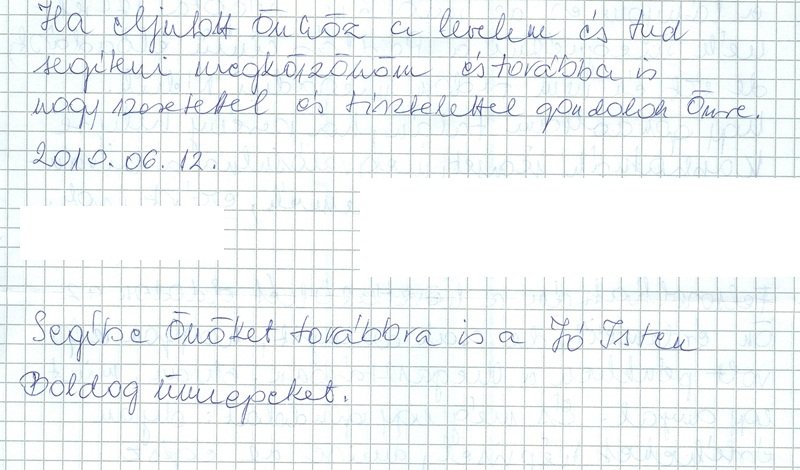 Ha eljutott Önhöz a levelem és tud
segíteni megköszönöm és továbbá is
nagy szeretettel és tisztelettel gondolok Önre.
2010. 06. 12.
Segítse Önöket továbbra is a Jó Isten
Boldog ünnepeket.